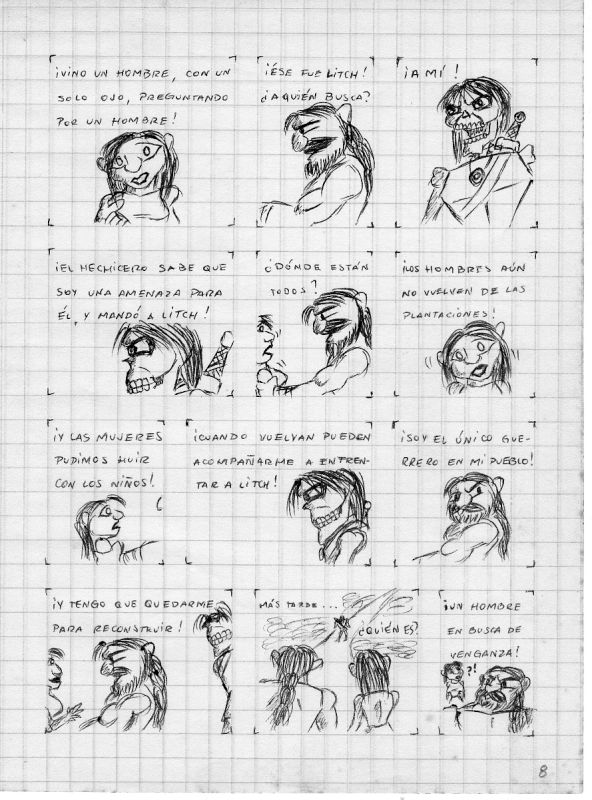 ¡VINO UN HOMBRE, CON UN
SOLO OJO, PREGUNTANDO
POR UN HOMBRE!
¡ÉSE FUE LITCH!
¿A QUIÉN BUSCA?
¡A MÍ!
¡EL HECHICERO SABE QUE
SOY UNA AMENAZA PARA
ÉL, Y MANDÓ A LITCH!
¿DÓNDE ESTÁN
TODOS?
¡LOS HOMBRES AÚN
NO VUELVEN DE LAS
PLANTACIONES!
¡Y LAS MUJERES
PUDIMOS HUIR
CON LOS NIÑOS!
¡CUANDO VUELVAN PUEDEN
ACOMPAÑARME A ENFREN-
TAR A LITCH!
¡SOY EL ÚNICO GUE-
RRERO EN MI PUEBLO!
¡Y TENGO QUE QUEDARME
PARA RECONSTRUIR!
MÁS TARDE...
¿QUIÉN ES?
¡UN HOMBRE
EN BUSCA DE
VENGANZA!
?!
8